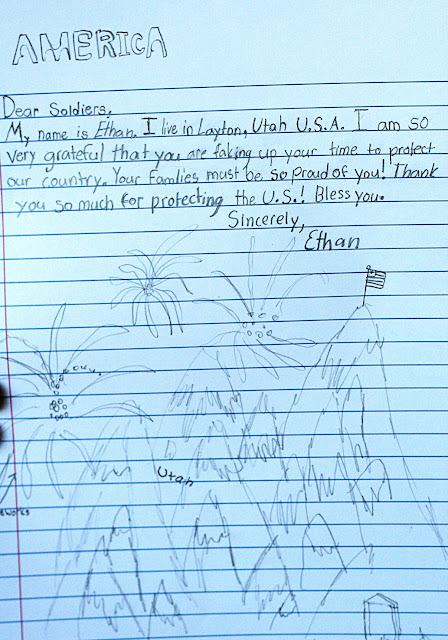 AMERICA
Dear Soldiers,
My name is Ethan. I live in Layton, Utah U.S.A. I am so
very grateful that you are taking up your time to protect
our country. Your Famlies must be so proud of you! Thank
you so much for protecting the U.S.! Bless you.
Sincerely,
Ethan
Utah